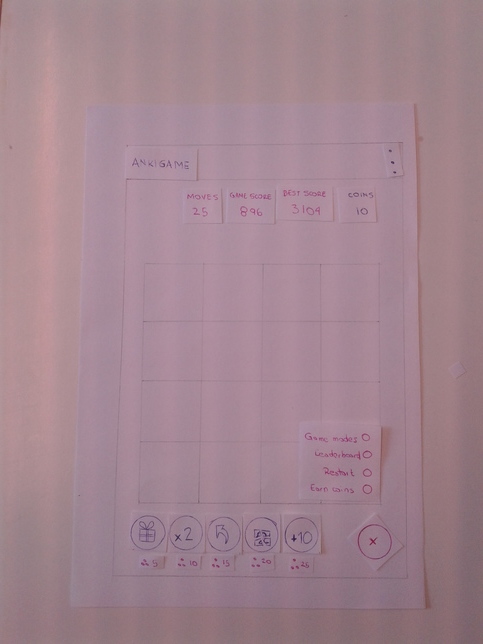 ANKIGAME
MOVES
25
GAME SCORE
896
BEST SCORE
3109
COINS
10
Game modes
Leaderboard
Restart
Earn coins
x2
+10
5
10
15
20
25
x